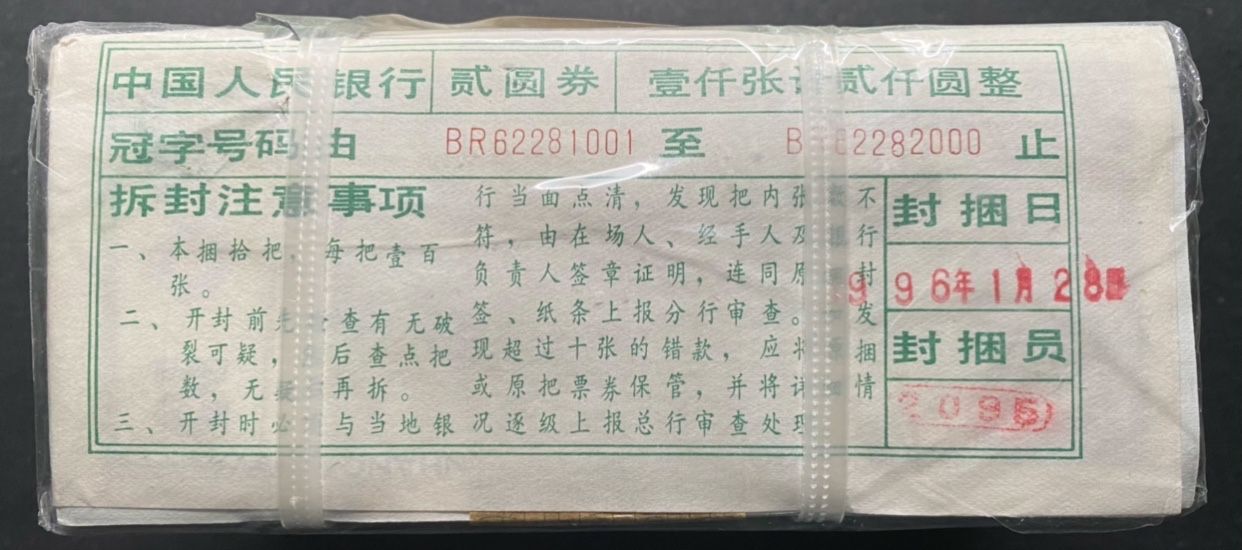 中国人民银行 贰圆券 壹仟张计贰仟圆整
冠字号码 由 BR62281001 至 BR62282000 止
拆封注意事项
一、本捆拾把，每把壹百
张。
二、开封前先 查有无破
裂可疑， 后查点把
数，无 再拆。
三、开封时必 与当地银
行当面点清，发现把内张数不
符，由在场人、经手人及 行
负责人签章证明，连同原 封
签、纸条上报分行审查。 发
现超过十张的错款，应将原捆
或原把票券保管，并将详细情
况逐级上报总行审查处理
封捆日
1996年1月28
封捆员
2095